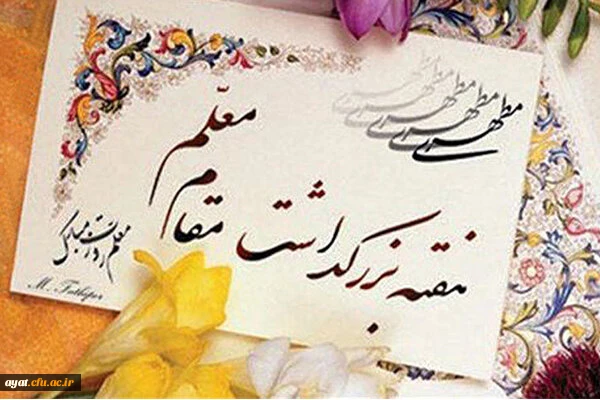 مطهری مطهری مطهری مطهری مطهری
هفته بزرگداشت
مقام
معلّم
معلم روزت مبارک
M. Fathipor
ayat.cfu.ac.ir